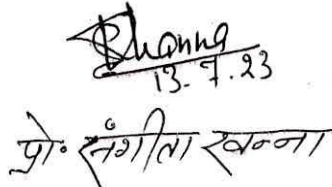 Khanna
13.7.23
प्रो॰ संगीता खन्ना